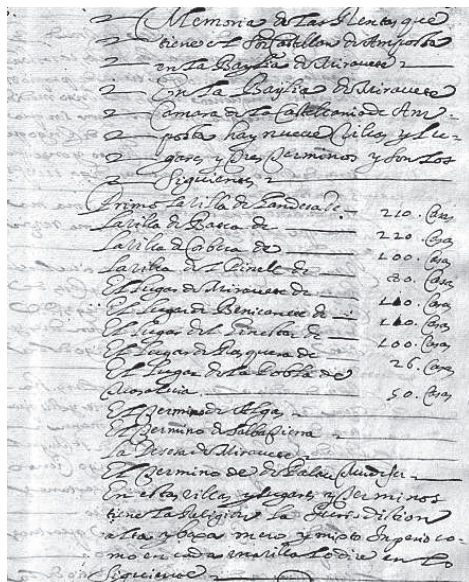 Memoria de Las Rentas que
tiene el Sor Castellan de Amposta
en La Baylia de Miravete
En La Baylia de Miravete
Camara de La Castellania de Am-
posta hay nueve Villas y Lu-
gares y tres terminos y son Los
Siguientes
Primo La villa de Gandesa de 210. Casas
La villa de Batea de 220. Casas
La villa de Corbera de 100. Casas
La villa del Pinell de 80. Casas
El Lugar de Miravete de Casas
El Lugar de Benicanet de Casas
El Lugar del Ginestar de 100. Casas
El Lugar de Rasquera de 26. Casas
El Lugar de La Pobla de
50. Casas
El termino de Algas
El termino de
La Desa de Miravete
El termino de de Palau
En estas villas y Lugares y terminos
tiene La Religion La Jurisdiction
alta y baxa mero y mixto Imperio co-
mo en cada una villa Lo dire en Lo
Siguiente